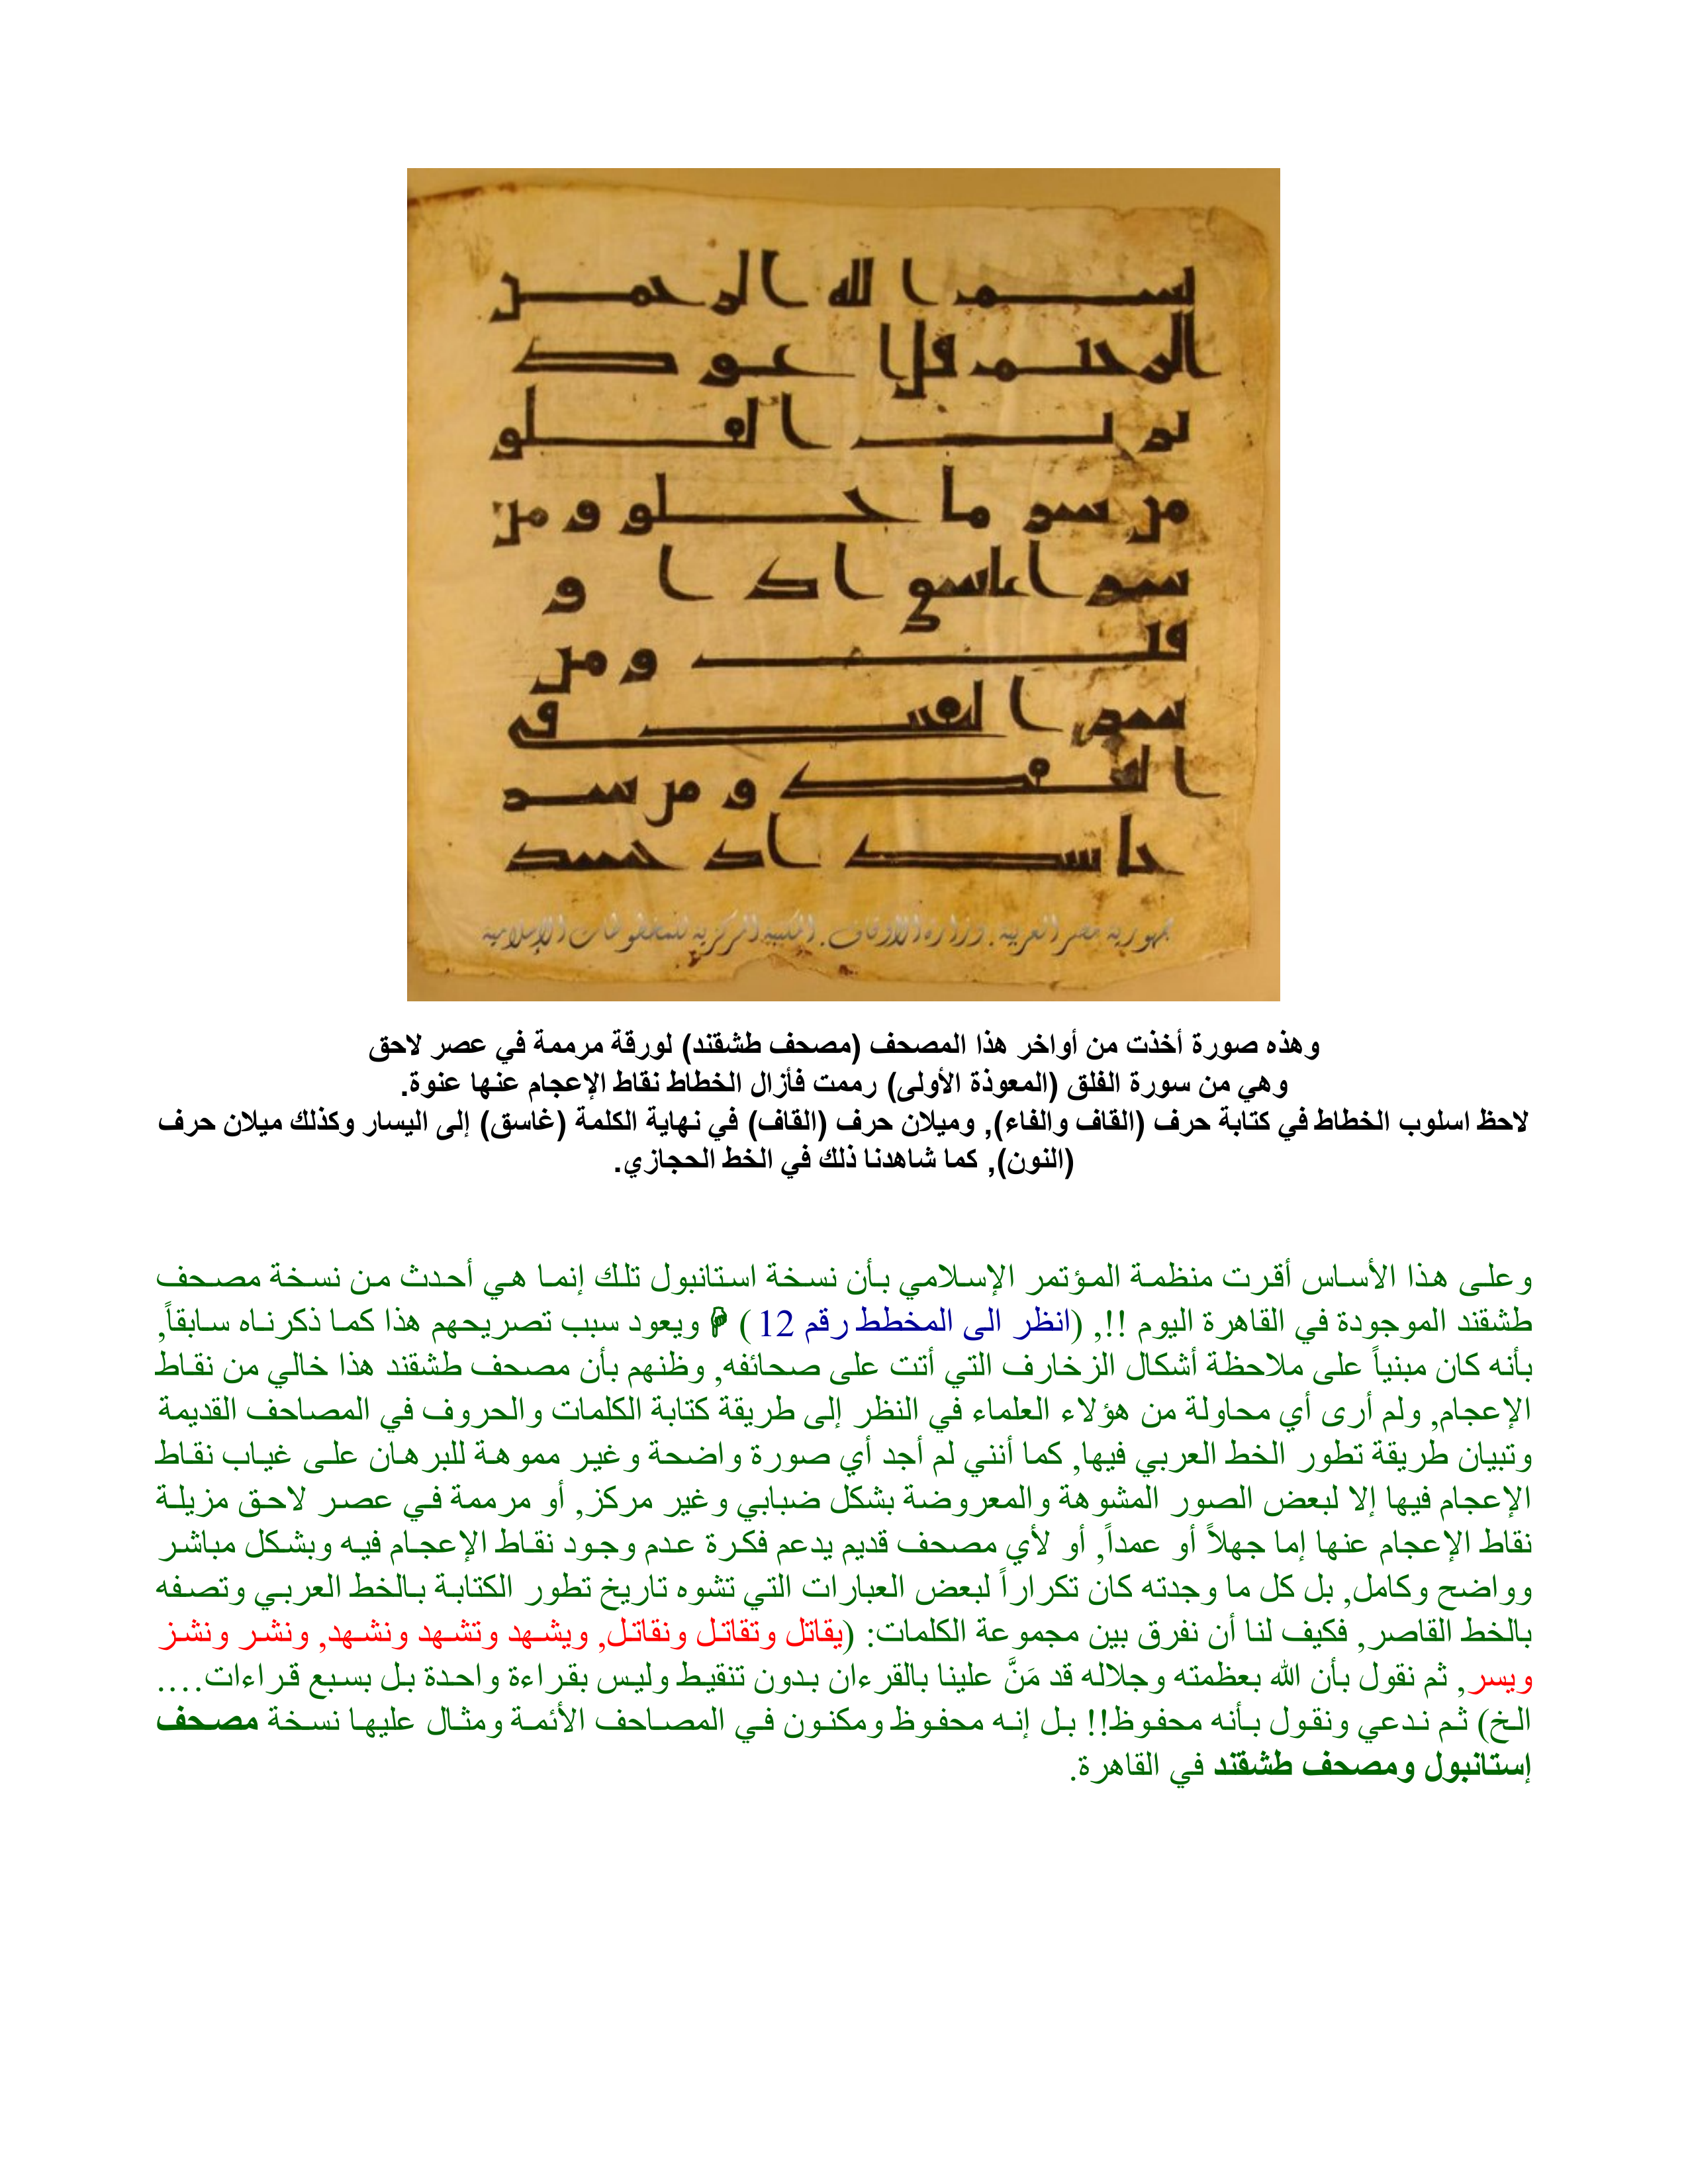 بسم ا لله ا لر حمن
الرحیم قل ا عو د
بر ب ا لفلق
من سر ما خلق و من
سر ا عاسق ا د ا و
قب و من
سر ا لنفثت فی
ا لعقد و من سر
حا سد ا د ا حسد
جمهورية مصر العربية . وزارة الأوقاف . المكتبة المركزية للمخطوطات الإسلامية
وهذه صورة أخذت من أواخر هذا المصحف (مصحف طشقند) لورقة مرممة في عصر لاحق
وهي من سورة الفلق (المعوذة الأولى) رممت فأزال الخطاط نقاط الإعجام عنها عنوة.
لاحظ اسلوب الخطاط في كتابة حرف (القاف والفاء), وميلان حرف (القاف) في نهاية الكلمة (غاسق) إلى اليسار وكذلك ميلان حرف
(النون), كما شاهدنا ذلك في الخط الحجازي.
وعلى هذا الأساس أقرت منظمة المؤتمر الإسلامي بأن نسخة استانبول تلك إنما هي أحدث من نسخة مصحف
طشقند الموجودة في القاهرة اليوم !!, (انظر الى المخطط رقم 12 ) ويعود سبب تصريحهم هذا كما ذكرناه سابقاً,
بأنه كان مبنياً على ملاحظة أشكال الزخارف التي أتت على صحائفه, وظنهم بأن مصحف طشقند هذا خالي من نقاط
الإعجام, ولم أرى أي محاولة من هؤلاء العلماء في النظر إلى طريقة كتابة الكلمات والحروف في المصاحف القديمة
وتبيان طريقة تطور الخط العربي فيها, كما أنني لم أجد أي صورة واضحة وغير مموهة للبرهان على غياب نقاط
الإعجام فيها إلا لبعض الصور المشوهة والمعروضة بشكل ضبابي وغير مركز, أو مرممة في عصر لاحق مزيلة
نقاط الإعجام عنها إما جهلاً أو عمداً, أو لأي مصحف قديم يدعم فكرة عدم وجود نقاط الإعجام فيه وبشكل مباشر
وواضح وكامل, بل كل ما وجدته كان تكراراً لبعض العبارات التي تشوه تاريخ تطور الكتابة بالخط العربي وتصفه
بالخط القاصر, فكيف لنا أن نفرق بين مجموعة الكلمات: (يقاتل وتقاتل ونقاتل, ويشهد وتشهد ونشهد, ونشر ونشز
ويسر, ثم نقول بأن الله بعظمته وجلاله قد مَنَّ علينا بالقرءان بدون تنقيط وليس بقراءة واحدة بل بسبع قراءات....
الخ) ثم ندعي ونقول بأنه محفوظ!! بل إنه محفوظ ومكنون في المصاحف الأئمة ومثال عليها نسخة مصحف
إستانبول ومصحف طشقند في القاهرة.